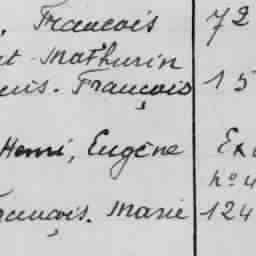 , François 72
at Mathurin
çois. François 15
Henri, Eugène Ex
no 4
François. Marie 124